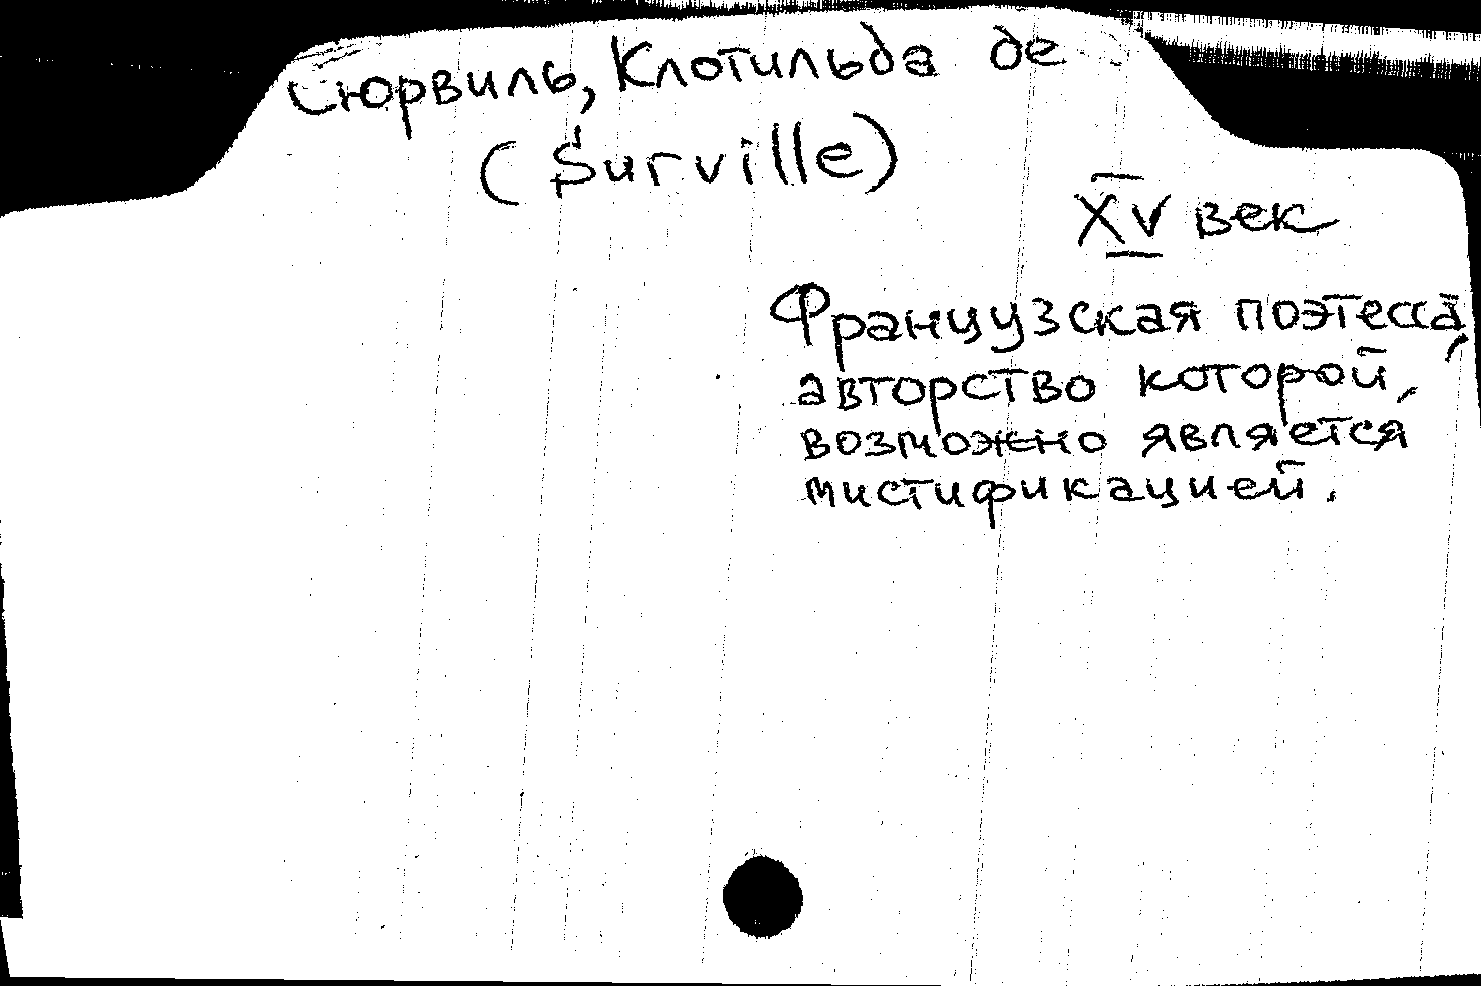 Сюрвиль, Клотильда де
(Surville)
XV век
Французская поэтесса,
авторство которой,
возможно является
мистификацией.